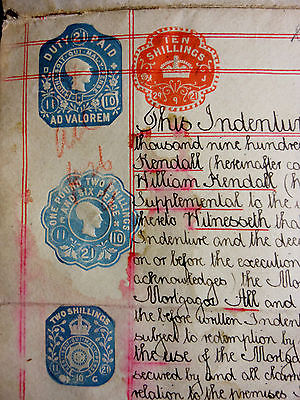 DUTY PAID
AD VALOREM
11
10
TEN
SHILLINGS
29 9 21
ONE POUND TWO SHILLINGS
AND SIX PENCE
11
10
21
TWO SHILLINGS
11
21
10
G
This Indenture
thousand nine hundred
Kendall (hereinafter ca
William Kendall (
Supplemental to the i
thereto Witnesseth th
Indenture and the dec
on or before the execution
acknowledges) the Mor
Mortgagor All and
the before written Indent
subject to redemption by
the use of the Mortga
secured by and all cha
relation to the premises